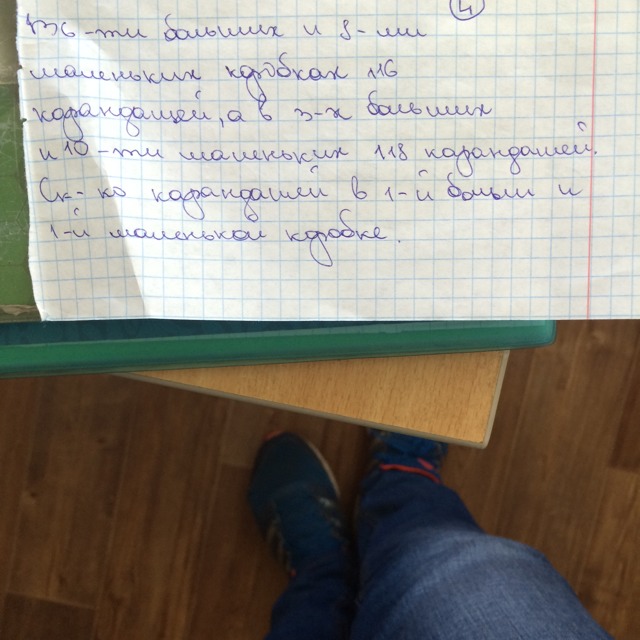 ④
В 6-ти больших и 8-ми
маленьких коробках 116
карандашей, а в 3-х больших
и 10-ти маленьких 118 карандашей.
Ск-ко карандашей в 1-й больш и
1-й маленькой коробке.